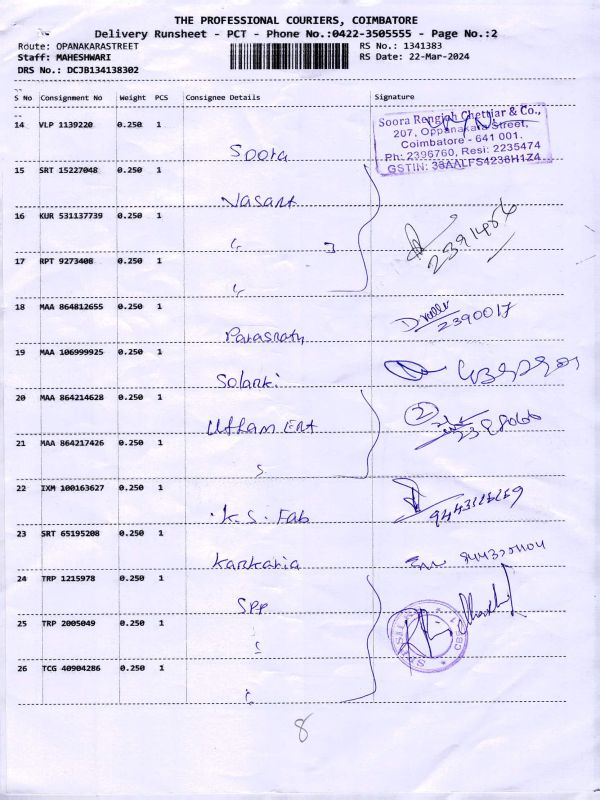 THE PROFESSIONAL COURIERS, COIMBATORE
Delivery Runsheet - PCT - Phone No.:0422-3505555 - Page No.:2
Route: OPANAKARASTREET RS No.: 1341383
Staff: MAHESHWARI RS Date: 22-Mar-2024
DRS No.: DCJB134138302
S No Consignment No Weight PCS Consignee Details Signature
14 VLP 1139220 0.250 1 Soora
Soora Rengiah Chettiar & Co.,
207, Oppanakara Street,
Coimbatore - 641 001.
Ph: 2396760, Resi: 2235474
GSTIN: 33AALFS4236H1Z4
15 SRT 15227048 0.250 1 Vasant
16 KUR 531137739 0.250 1 "
2391486
17 RPT 9273408 0.250 1 "
18 MAA 864812655 0.250 1 2390017
19 MAA 106999925 0.250 1 Solanki
20 MAA 864214628 0.250 1 Uttam Ent
2
21 MAA 864217426 0.250 1 "
22 IXM 100163627 0.250 1 K.S. Fab
23 SRT 65195208 0.250 1 Karkaria
24 TRP 1215978 0.250 1 SPP
25 TRP 2005049 0.250 1 "
26 TCG 40904286 0.250 1 "
8